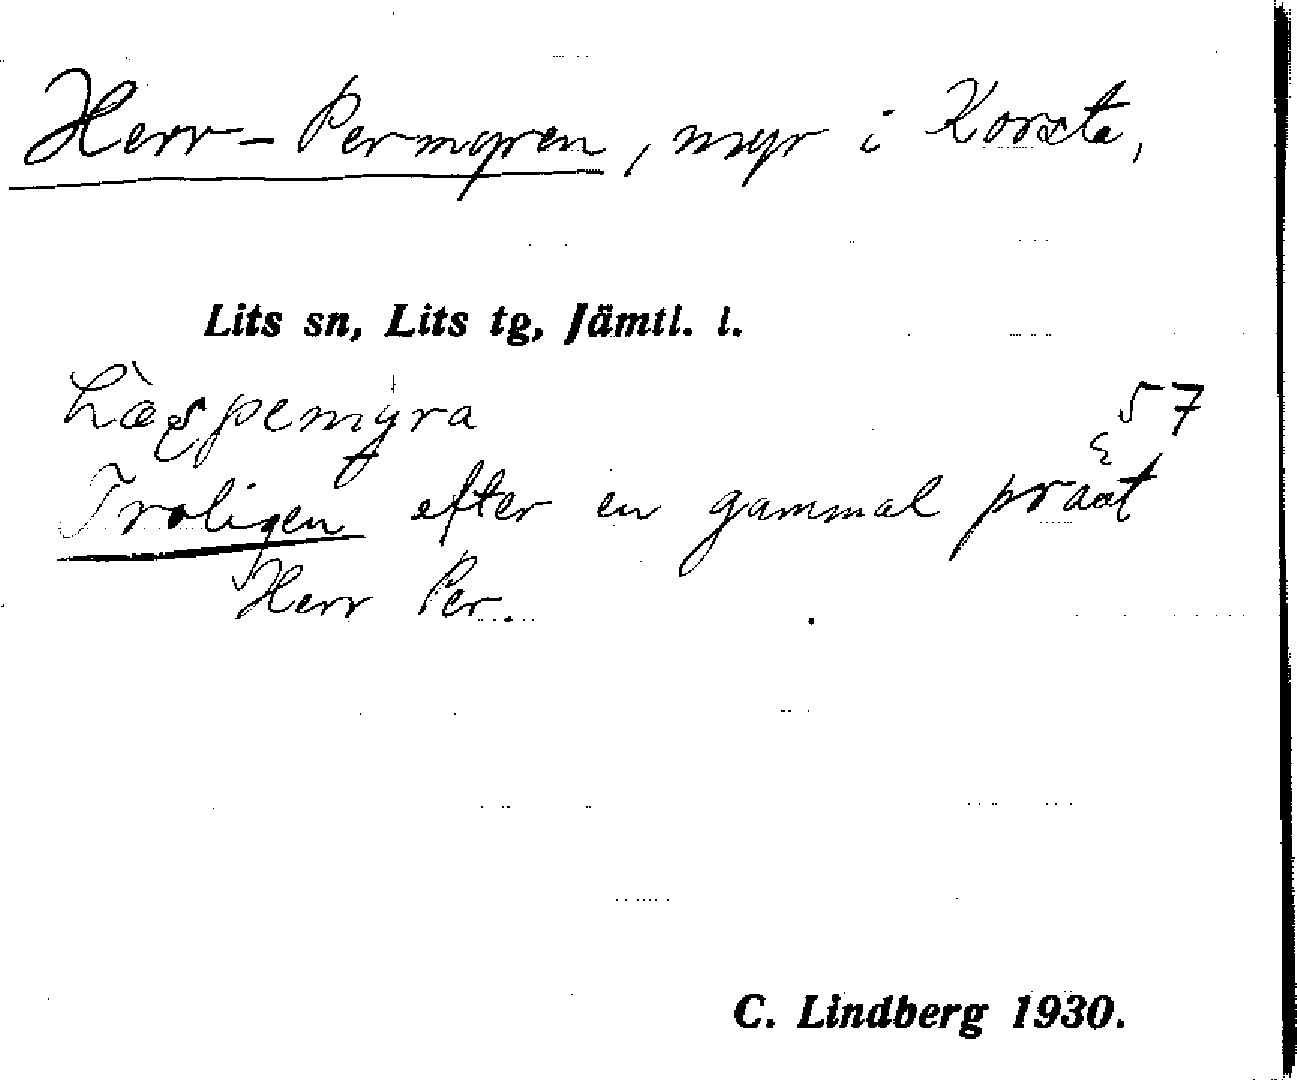 Herr-Permyren, myr i Korsta,
Lits sn, Lits tg, Jämtl. l.
57
Troligen efter en gammal präst
Herr Per.
C. Lindberg 1930.